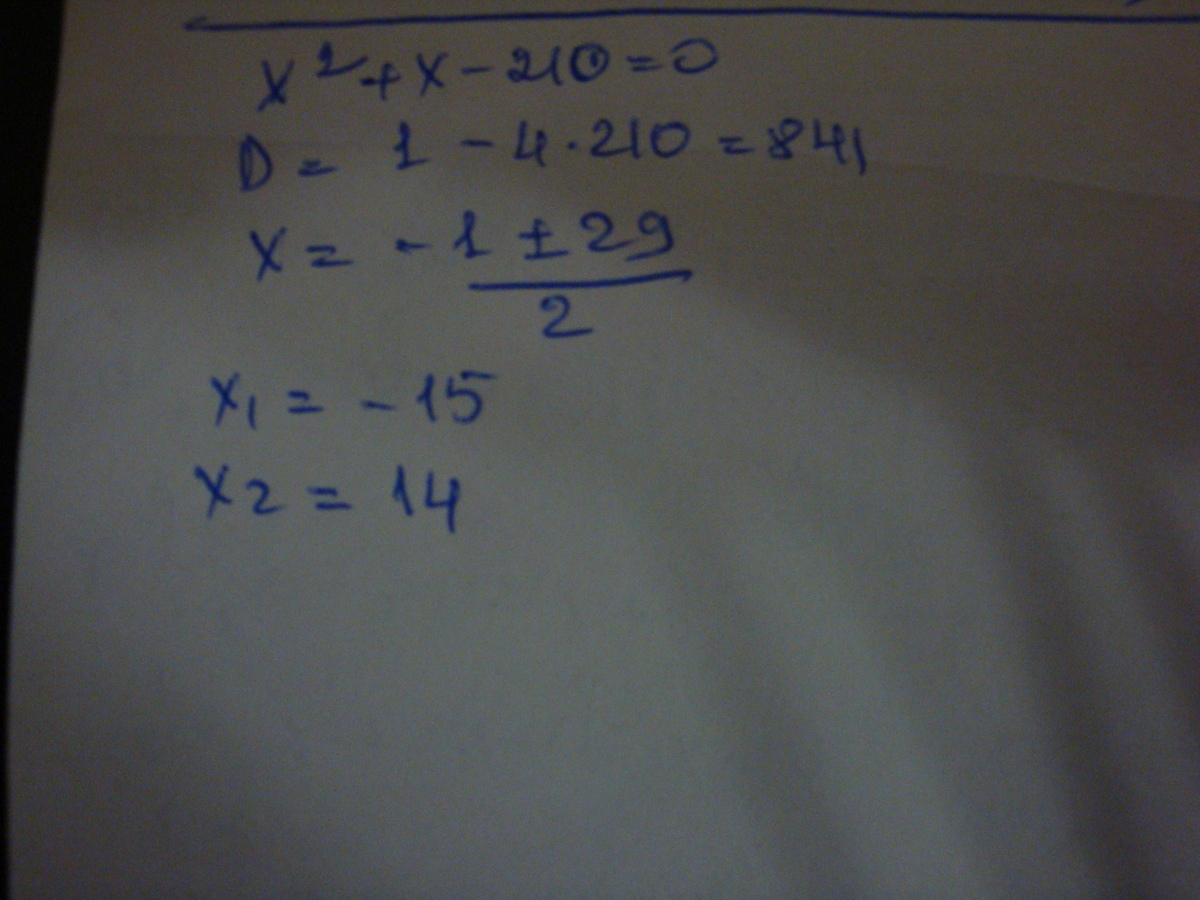 x² + x - 210 = 0
D = 1 - 4 · 210 = 841
x = -1 ± 29 / 2
x₁ = - 15
x2 = 14